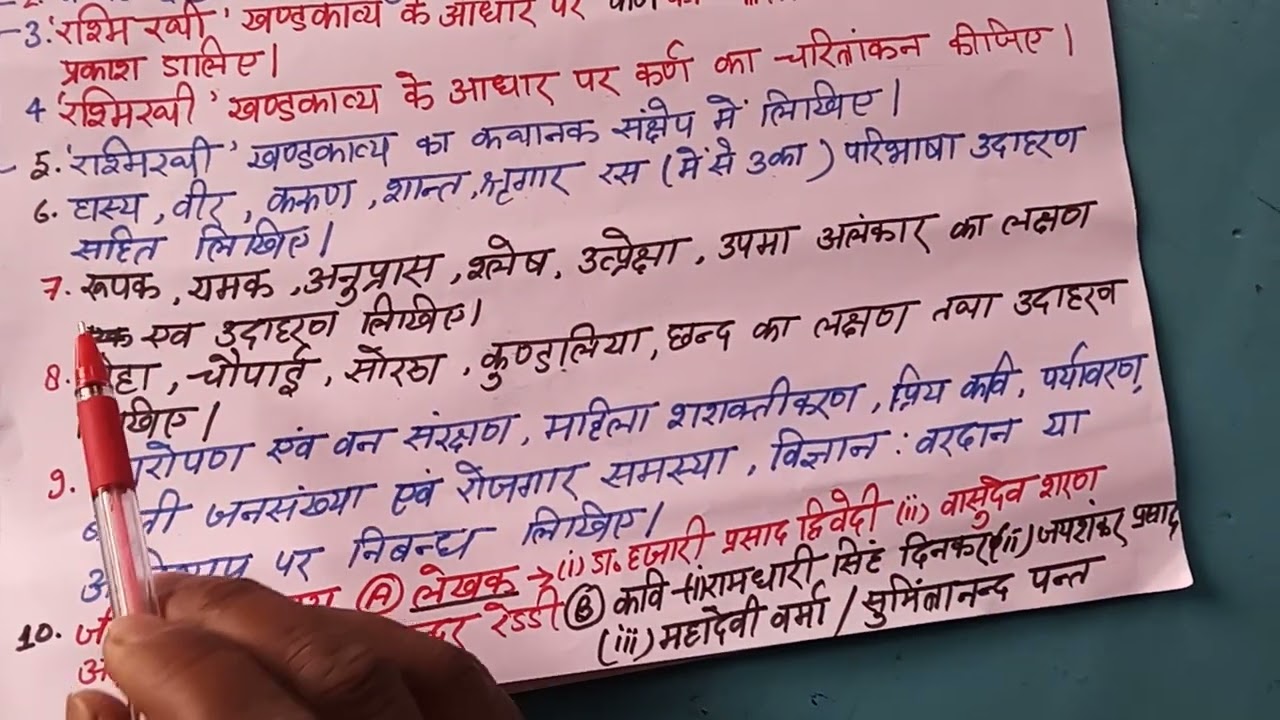 3. 'रश्मि रथी' खण्डकाव्य के आधार पर
प्रकाश डालिए।
4 'रश्मिरथी' खण्डकाव्य के आधार पर कर्ण का चरितांकन कीजिए।
5. 'रश्मिरथी' खण्डकाव्य का कथानक संक्षेप में लिखिए।
6. हास्य, वीर, करुण, शान्त, श्रृगार रस (में से 3का) परिभाषा उदाहरण
सहित लिखिए।
7. रूपक, यमक, अनुप्रास, श्लेष, उत्प्रेक्षा, उपमा अलंकार का लक्षण
एव उदाहरण लिखिए।
8. चौपाई, सोरठा, कुण्डलिया, छन्द का लक्षण तथा उदाहरण
9. एंव वन संरक्षण, महिला शशक्तीकरण, प्रिय कवि, पर्यावरण,
जनसंख्या एवं रोजगार समस्या, विज्ञान : वरदान या
पर निबन्ध लिखिए।
10. (A) लेखक → (i) डा. हजारी प्रसाद द्विवेदी (ii) वासुदेव शरण
रेडडी (B) कवि रामधारी सिंह दिनकर (ii) जयशंकर प्रसाद
(iii) महादेवी वर्मा / सुमित्रानन्द पन्त